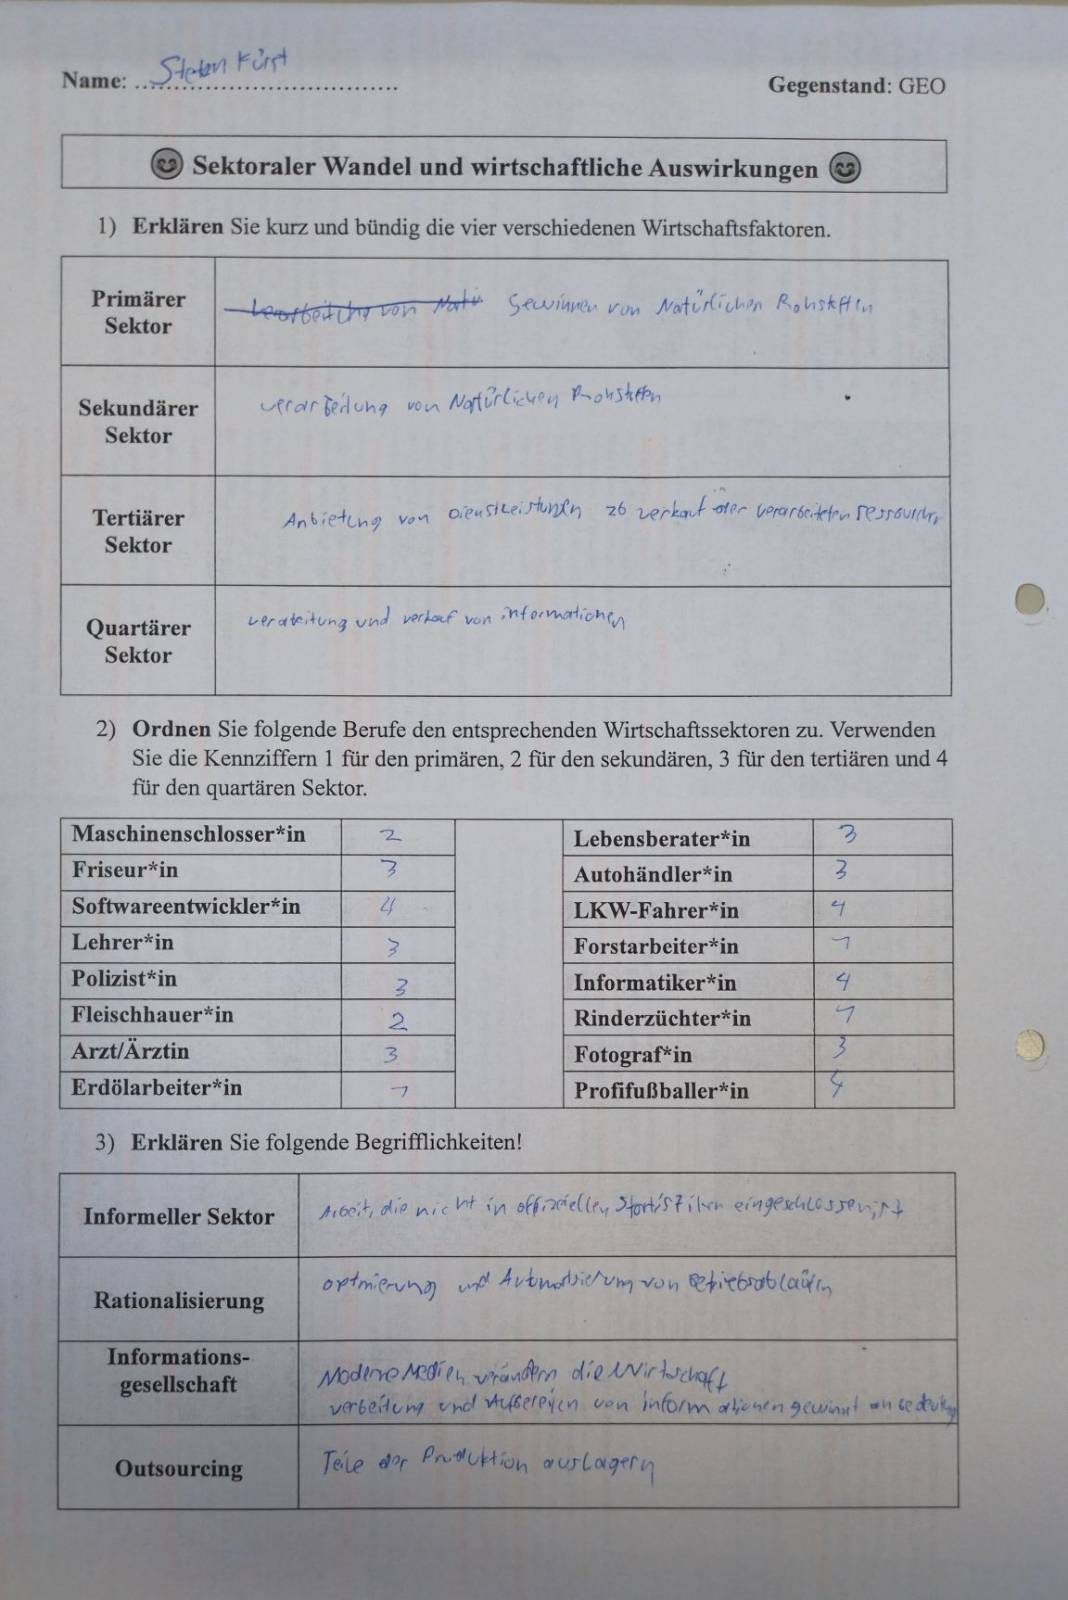 Name: Stefan Fürst
Gegenstand: GEO
Sektoraler Wandel und wirtschaftliche Auswirkungen
1) Erklären Sie kurz und bündig die vier verschiedenen Wirtschaftsfaktoren.
Primärer Sektor
Gewinnen von Natürlichen Rohstoffen
Sekundärer Sektor
verarbeitung von Natürlichen Rohstoffen
Tertiärer Sektor
Anbietung von Dienstleistungen zb verkauf der verarbeiteten ressourcen
Quartärer Sektor
verarbeitung und verkauf von informationen
2) Ordnen Sie folgende Berufe den entsprechenden Wirtschaftssektoren zu. Verwenden
Sie die Kennziffern 1 für den primären, 2 für den sekundären, 3 für den tertiären und 4
für den quartären Sektor.
Maschinenschlosser*in 2
Lebensberater*in 3
Friseur*in 3
Autohändler*in 3
Softwareentwickler*in 4
LKW-Fahrer*in 4
Lehrer*in 3
Forstarbeiter*in 1
Polizist*in 3
Informatiker*in 4
Fleischhauer*in 2
Rinderzüchter*in 1
Arzt/Ärztin 3
Fotograf*in 3
Erdölarbeiter*in 1
Profifußballer*in 4
3) Erklären Sie folgende Begrifflichkeiten!
Informeller Sektor
Arbeit, die nicht in offiziellen Startistiken eingeschlossen ist
Rationalisierung
optmierung und Automatisierung von Betriebsabläufen
Informations-
gesellschaft
Moderne Medien verändern die Wirtschaft
verbeitung und Aufbereiten von informationen gewinnt an bedeutung
Outsourcing
Teile der Produktion auslagern